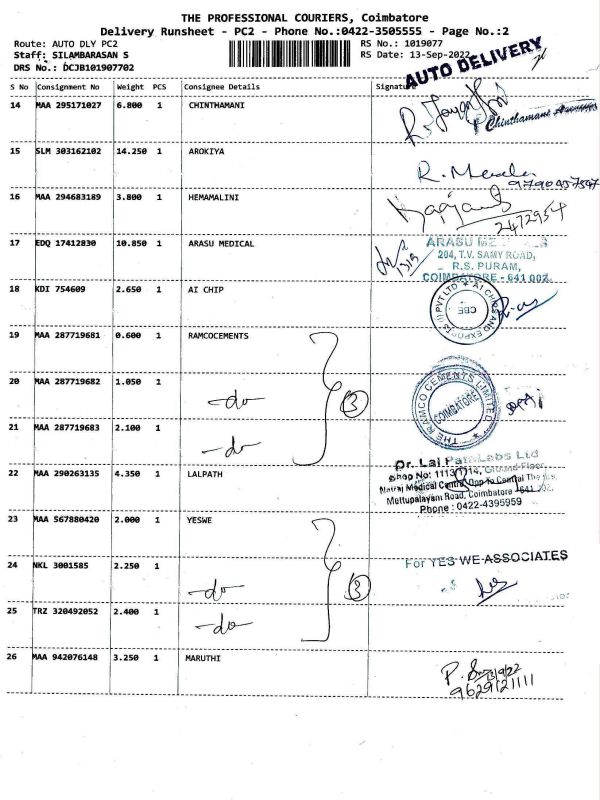 THE PROFESSIONAL COURIERS, Coimbatore
Delivery Runsheet - PC2 - Phone No.:0422-3505555 - Page No.:2
Route: AUTO DLY PC2 RS No.: 1019077
Staff: SILAMBARASAN S RS Date: 13-Sep-2022
DRS No.: DCJB101907702
AUTO DELIVERY
S No Consignment No Weight PCS Consignee Details Signature
14 MAA 295171027 6.800 1 CHINTHAMANI
Chinthamani
15 SLM 303162102 14.250 1 AROKIYA
R.
16 MAA 294683189 3.800 1 HEMAMALINI
2472954
17 EDQ 17412830 10.850 1 ARASU MEDICAL
ARASU MEDICALS
204, T.V. SAMY ROAD,
R.S. PURAM,
COIMBATORE - 641 002.
18 KDI 754609 2.650 1 AI CHIP
AI CHIPS AND EXPORTS (I) PVT LTD
CBE
19 MAA 287719681 0.600 1 RAMCOCEMENTS
20 MAA 287719682 1.050 1 -do 3
THE RAMCO CEMENTS LIMITED
COIMBATORE
21 MAA 287719683 2.100 1 -do
22 MAA 290263135 4.350 1 LALPATH
Dr. Lal PathLabs Ltd
Shop No: 1113/14, Ground Floor,
Natraj Medical Centre, Opp To Central Theatre,
Mettupalayam Road, Coimbatore - 641 002.
Phone : 0422-4395959
23 MAA 567880420 2.000 1 YESWE
For YES WE ASSOCIATES
24 NKL 3001585 2.250 1 -do 3
25 TRZ 320492052 2.400 1 -do
26 MAA 942076148 3.250 1 MARUTHI
P. 13/9/22
9629121111